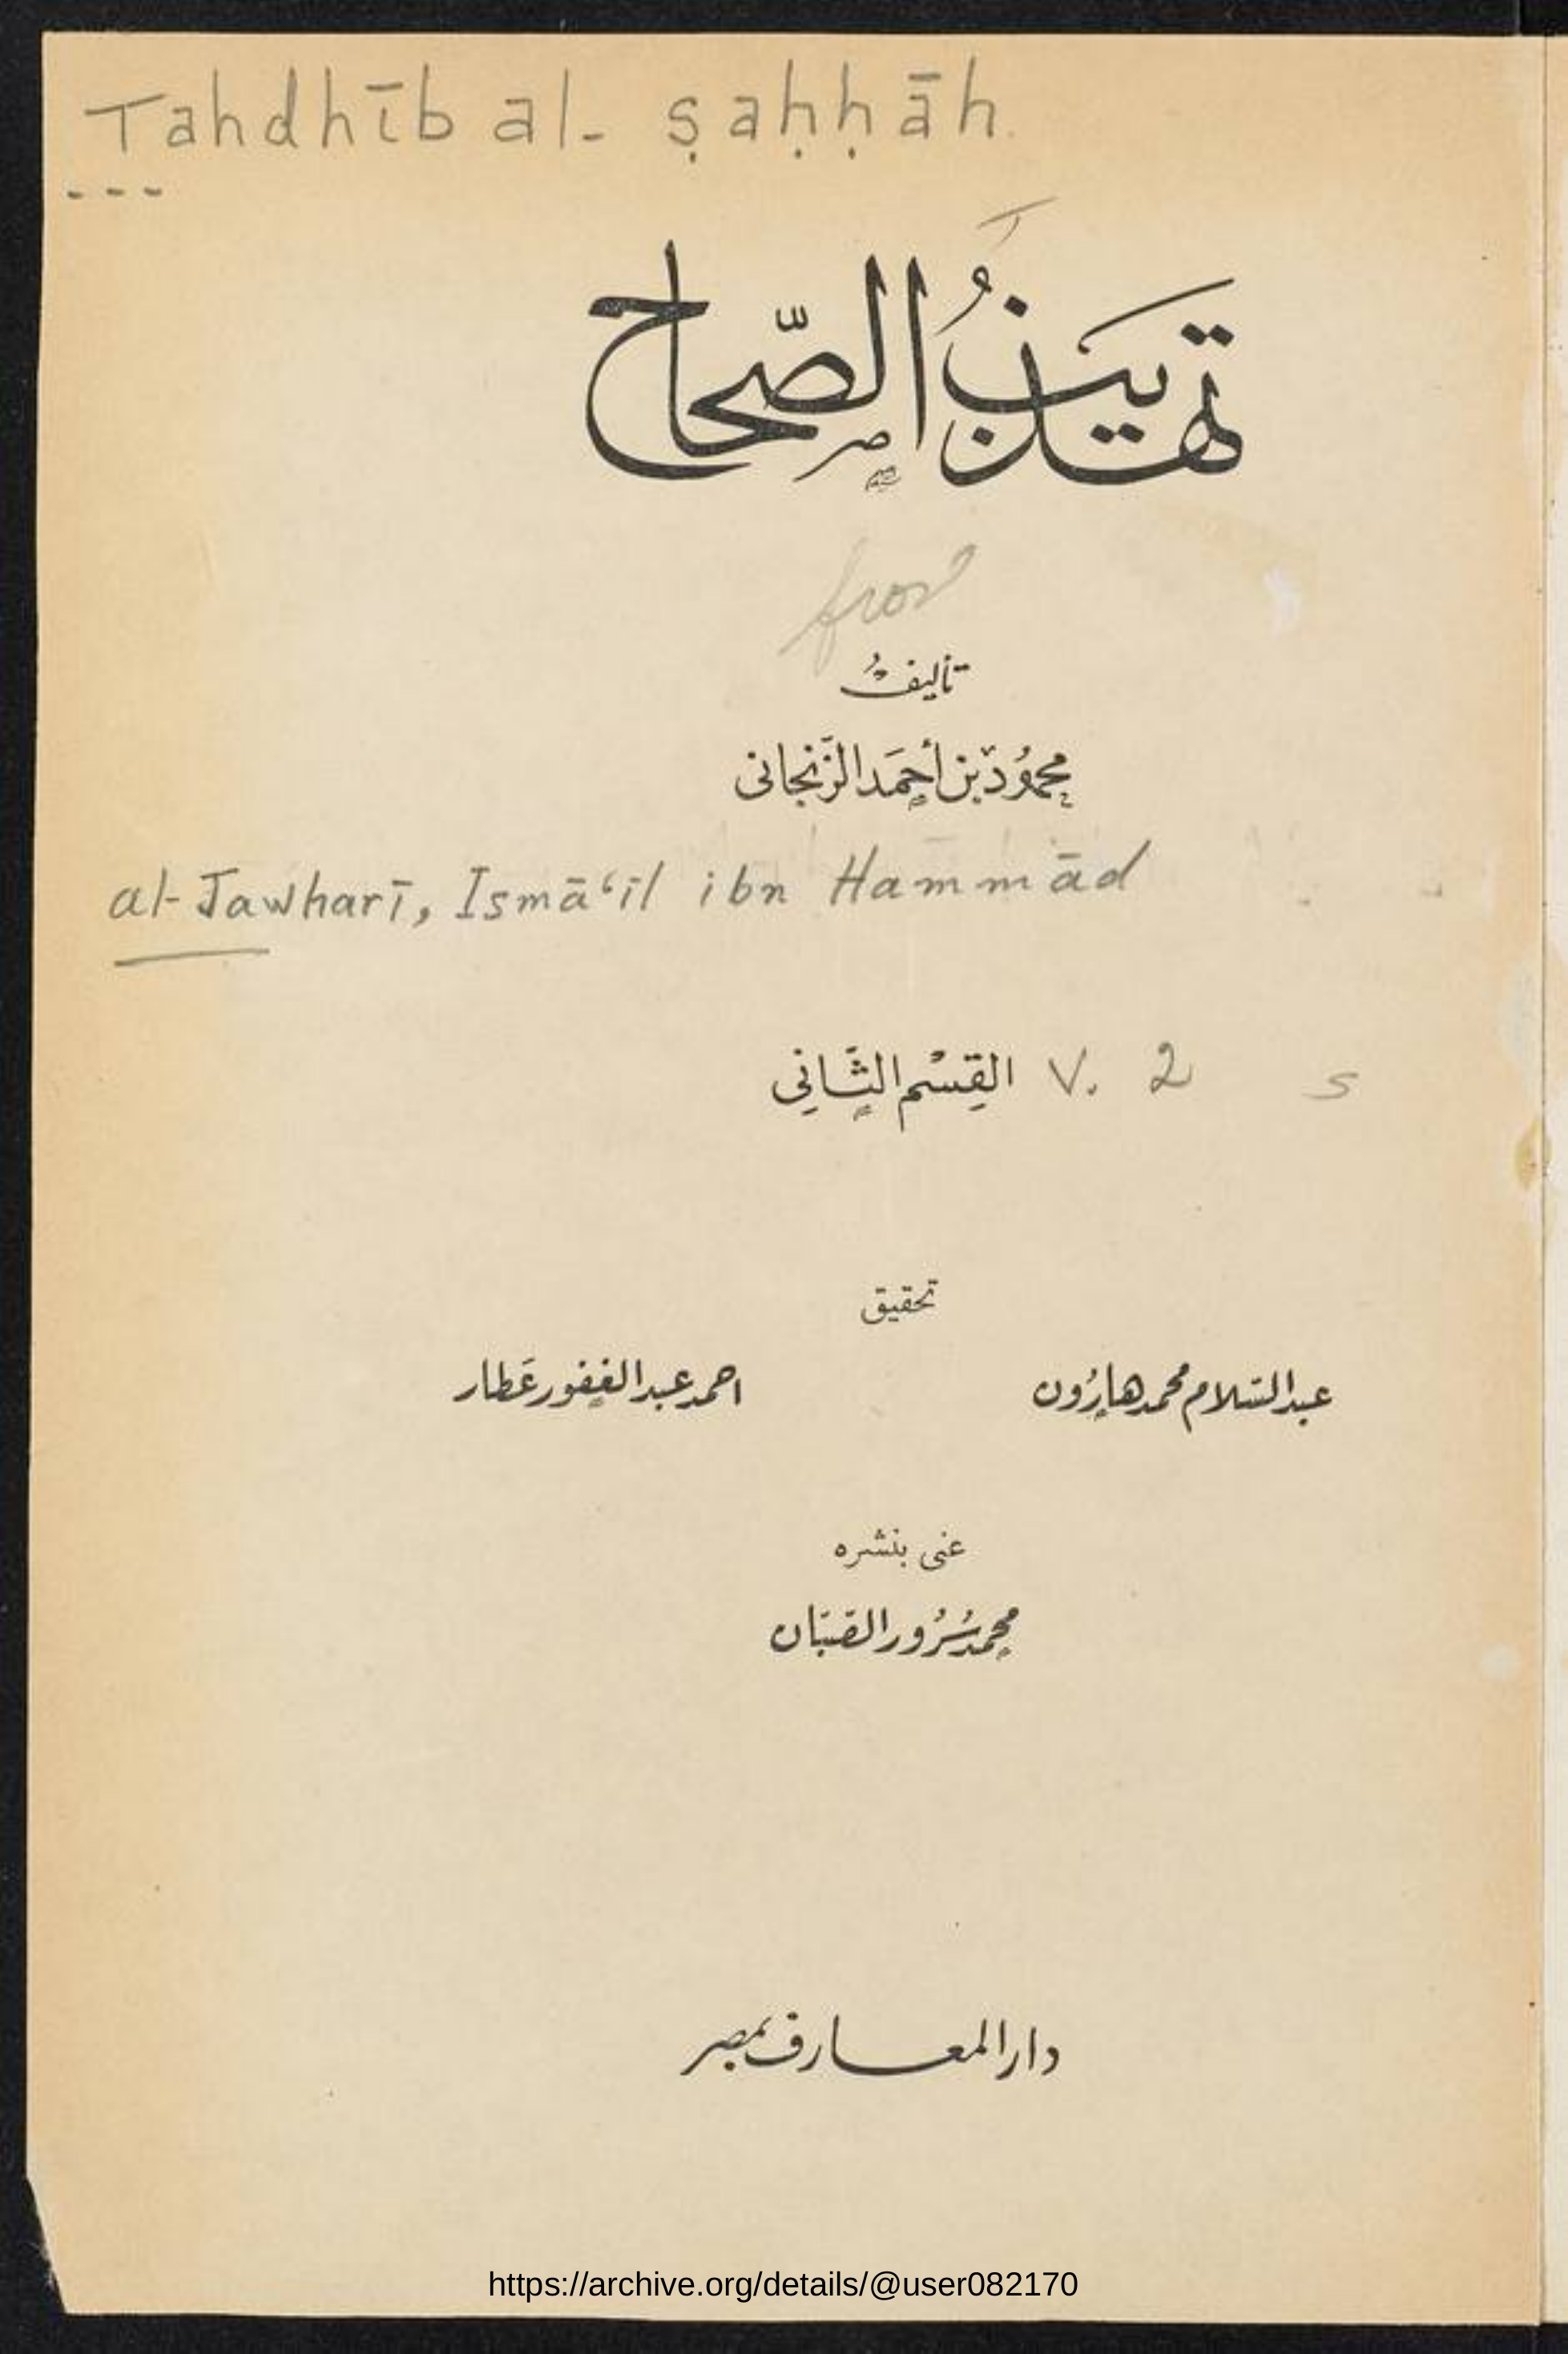 Tahdhīb al-ṣaḥḥāh
تهذيبُ الصّحاح
تأليفُ
محمُود بن أحمَد الزّنجانى
al-Jawharī, Ismāʿīl ibn Hammād
القِسْم الثَّانِي V. 2 s
تحقيق
عبد السّلام محمد هارُون احمد عبد الغفور عَطار
عنى بنشره
محمد سُرُور الصّبّان
دار المعارف بمصر
https://archive.org/details/@user082170